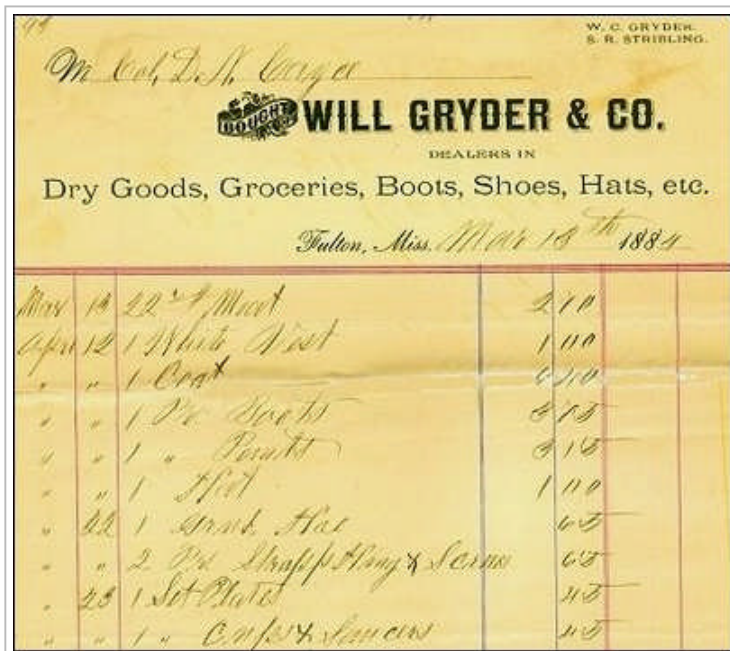 W. C. GRYDER.
S. R. STRIBLING.
M Col. D. N.
BOUGHT
WILL GRYDER & CO.
DEALERS IN
Dry Goods, Groceries, Boots, Shoes, Hats, etc.
Fulton, Miss. Mar 13th 1884
Mar 13 22 # Meat 2 10
April 12 1 White Vest 1 00
" " 1 Coat
" " 1 Pr Boots 3 15
" " 1 " Pants 3 15
" " 1 Hat 1 00
" 22 1 Grub Hoe 65
" " 2 Pr Strap Hing & Screws 65
" 23 1 Set Plates 45
" " 1 " Cups & Saucers 45